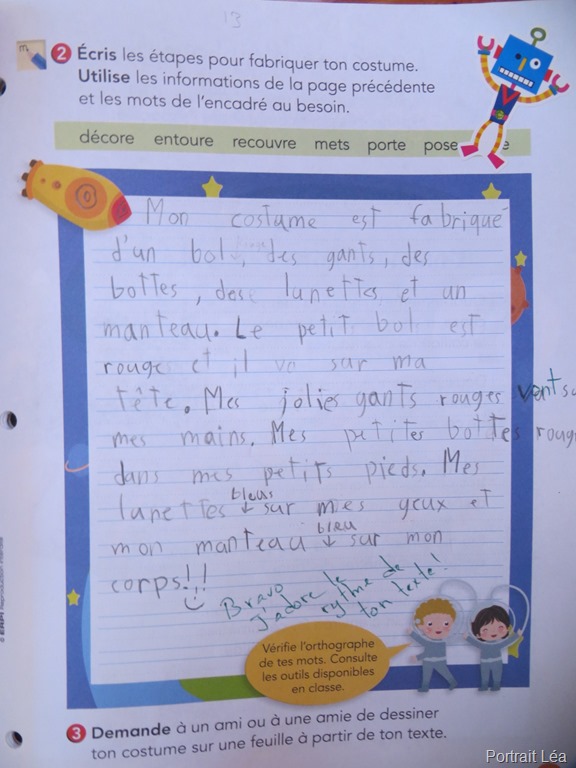 13
2 Écris les étapes pour fabriquer ton costume.
Utilise les informations de la page précédente
et les mots de l'encadré au besoin.
décore entoure recouvre mets porte pose
Mon costume est fabriqué
d'un bol, des gants, des
bottes, des lunettes et un
manteau. Le petit bol est
rouge et il va sur ma
tête. Mes jolies gants rouges vont
mes mains. Mes petites bottes
dans mes petits pieds. Mes
bleus
lunettes ↓ sur mes yeux et
bleu
mon manteau ↓ sur mon
corps!!!
Bravo
J'adore le
rytme de
ton texte!
Vérifie l'orthographe
de tes mots. Consulte
les outils disponibles
en classe.
3 Demande à un ami ou à une amie de dessiner
ton costume sur une feuille à partir de ton texte.
Portrait Léa